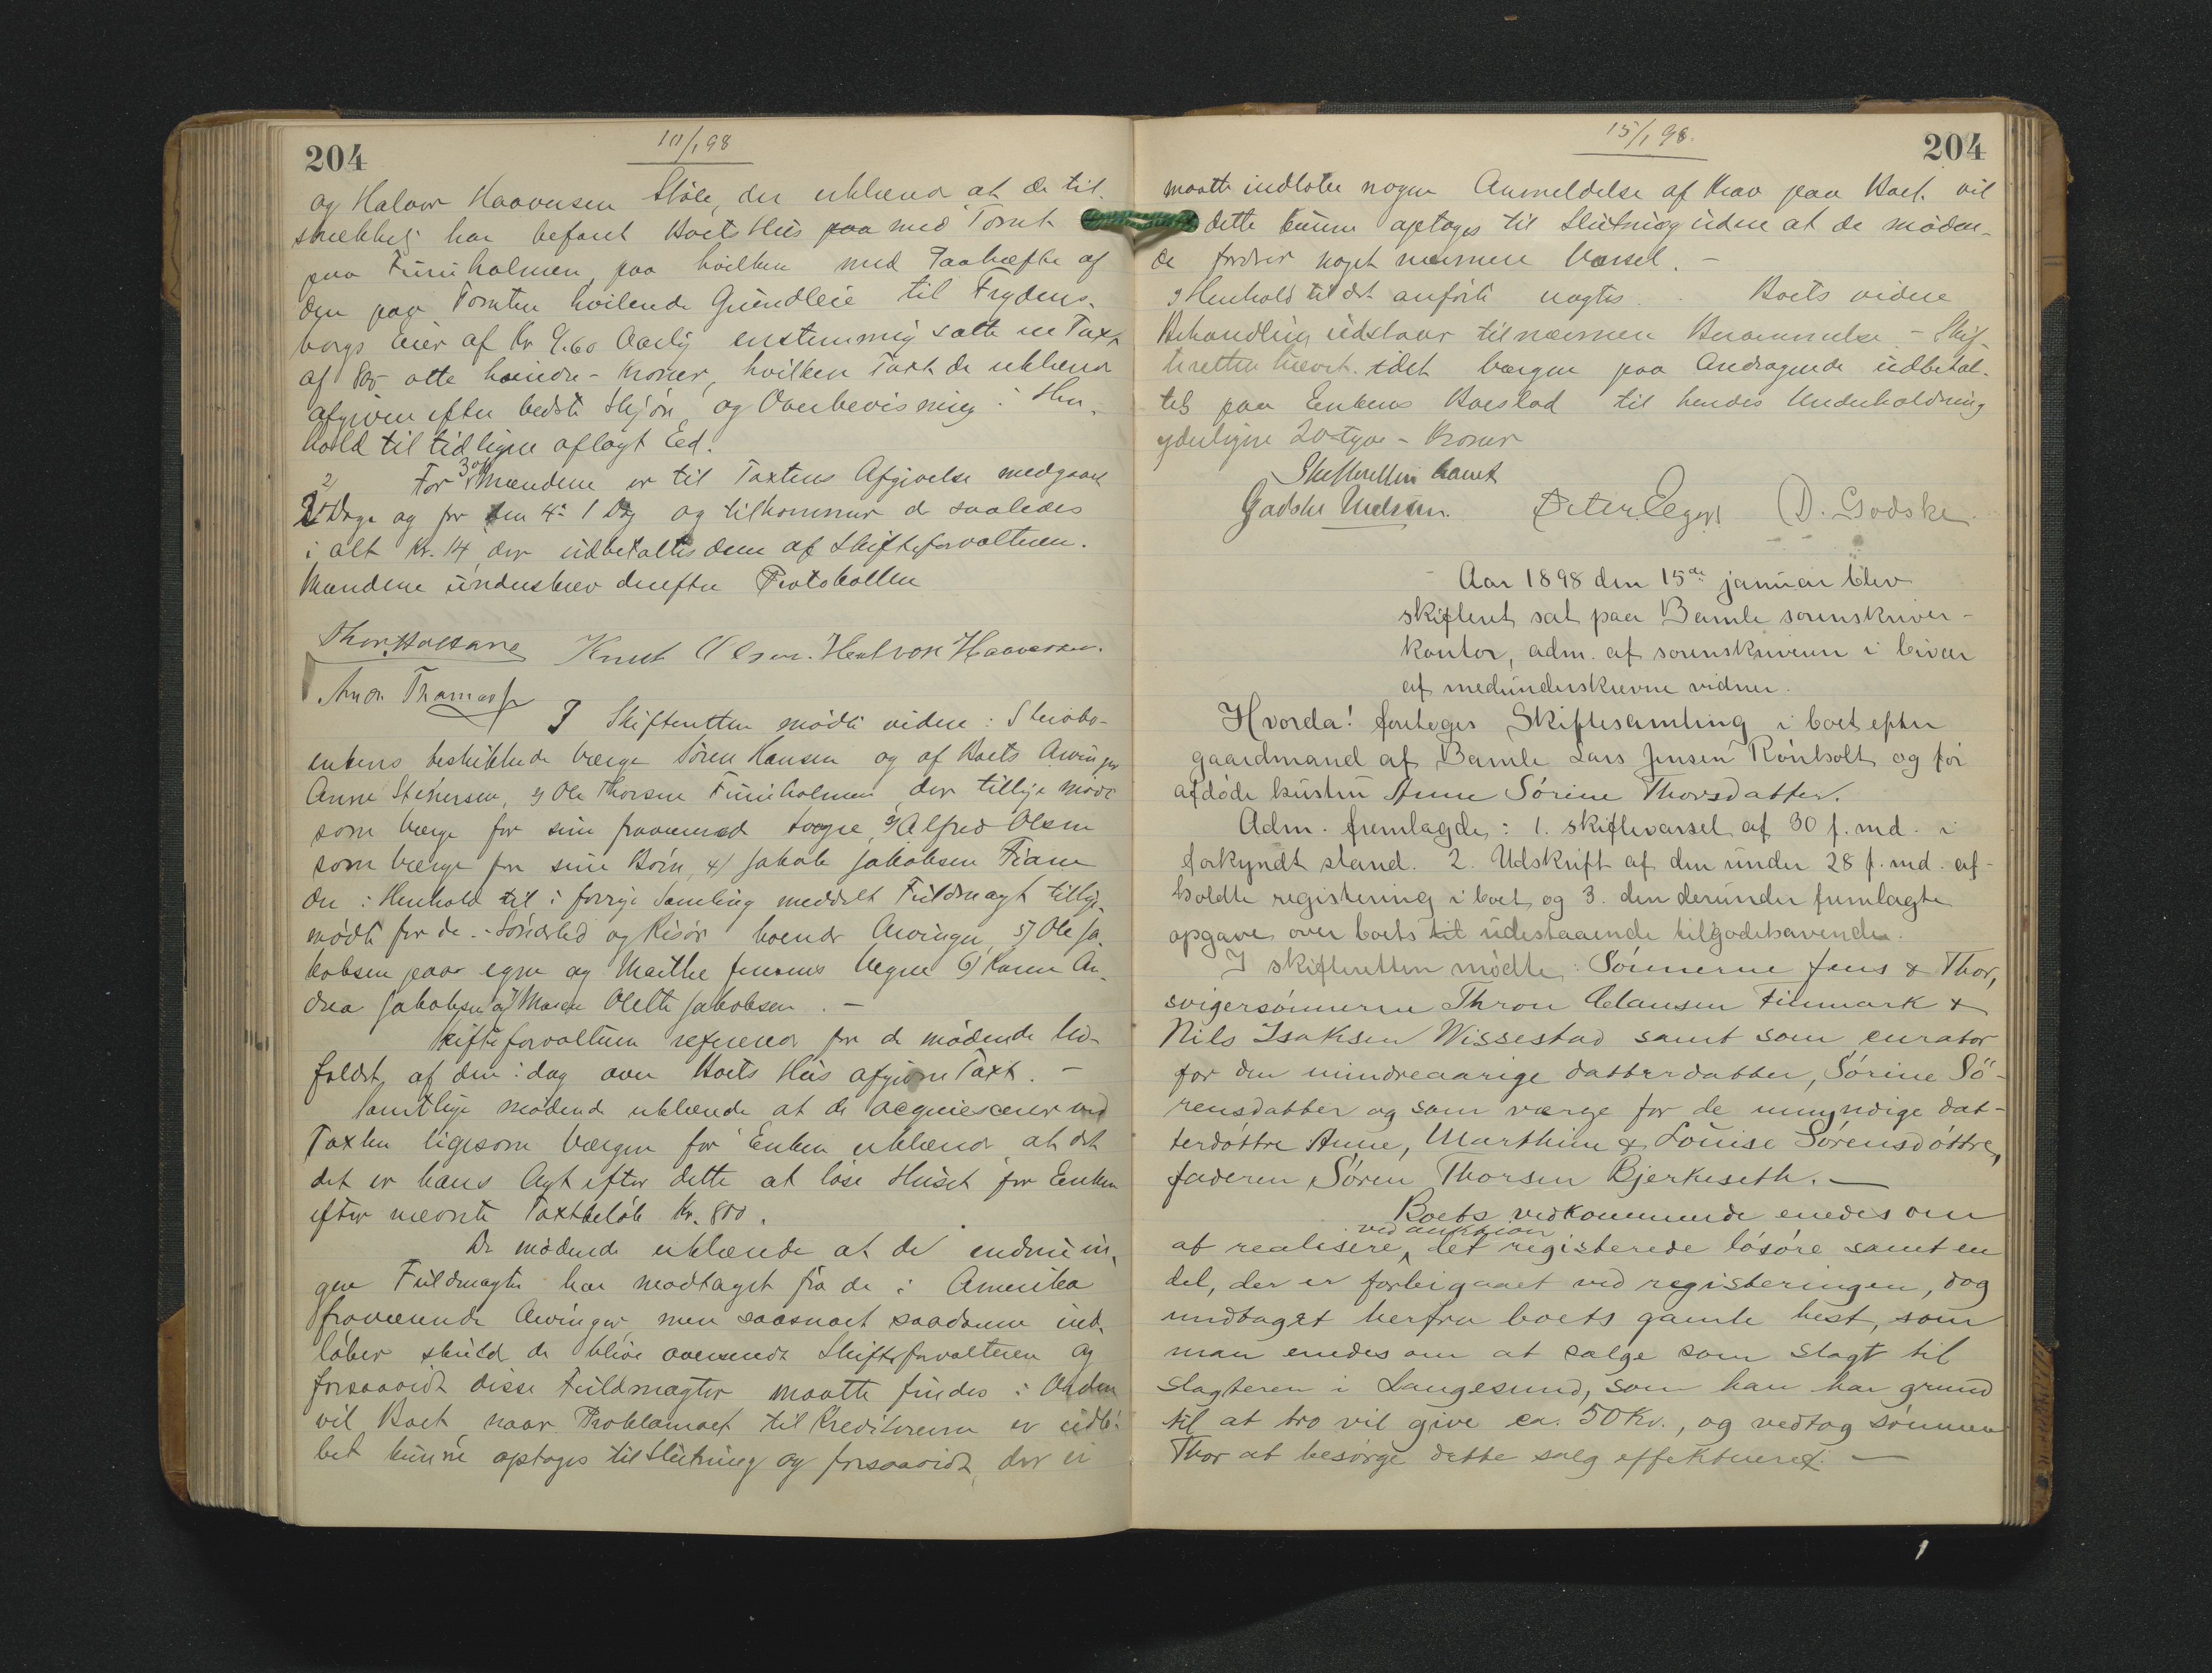 204
10/1 98
og Halvor Haavorsen Støle, der erklærer at de til
strækkelig har befaret Boets Hus paa med Tomt
paa Furuholmen, paa hvilken med Paahæfte af
den paa Tomten hvilende Grundleie til Frydens-
borgs Eier af Kr 9.60 Aarlig enstemmig satte en Taxt
af 800 otte hundre - Kroner, hvilken Taxt de erklærer
afgiven efter bedste Skjøn og Overbevisning i Hen-
hold til tidligere aflagt Eed.
2) For 3 af Mændene er til Taxtens Afgivelse medgaaet
2 Dage og for den 4de 1 Dag og tilkommer de saaledes
i alt Kr. 14, der udbetaltes dem af Skifteforvalteren.
Mændene underskrev derefter Protokollen
Thor Holtane Knut Olsen. Halvor Haavorsen.
And. Thomas
I Skifteretten mødte videre: Stervbo-
enkens beskikkede Værge Søren Hansen og af Boets Arvinger
Anne Stenersen, 2) Ole Thorsen Furuholmen, der tillige mødte
som Værge for sine fraværende, 3) Alfred Olsen
som Værge for sine Børn, 4) Jakob Jakobsen Fiane
der i Henhold til i forrige Samling meddelt Fuldmagt tillige
mødte for de i Søndeled og Risør boende Arvinger, 5) Ole Ja-
kobsen paa egne og Marthe Jensens Vegne 6) Karen An-
drea Jakobsen og 7) Maren Olette Jakobsen. -
Skifteforvalteren refererede for de mødende Ud-
faldet af den i dag over Boets Hus afgivne Taxt. -
Samtlige mødende erklærede at de acquiescerer ved
Taxten ligesom Værgen for Enken erklærede at det
det er hans Agt efter dette at løse Huset for Enken
efter nævnte Taxtbeløb Kr. 800.
De mødende erklærede at de endnu in-
gen Fuldmagter har modtaget fra de i Amerika
fraværende Arvinger, men saasnart saadanne ind-
løber skuld de blive oversendt Skifteforvalteren og
forsaavidt disse Fuldmagter maatte findes i Orden
vil Boet, naar Proklamaet til Kreditorerne er udlø-
bet kunne optages til Slutning og forsaavidt der ei
204
15/1 98.
maatte indløbe nogen Anmeldelse af Krav paa Boet. vil
dette kunne optages til Slutning uden at de møden-
de fordrer noget nærmere Varsel. -
I Henhold til det anførte Boets videre
Behandling udstaar til nærmere Berammelse - Skif-
teretten hævet. idet Værgen paa Andragende udbetal-
tes paa Enkens Boeslod til hendes Underholdning
yderligere 20 - tyve - Kroner
Skifteretten hævet
Godske Nielsen. Peter Eegen D. Godske.
Aar 1898 den 15de januar blev
skifteret sat paa Bamle sorenskriver-
kontor, adm. af sorenskriveren i livær
af medunderskrevne vidner.
Hvorda! foretoges Skiftesamling i boet efter
gaardmand af Bamle Lars Jensen Rønholt og før
afdøde hustru Anne Sørine Thorsdatter.
Adm. fremlagde: 1. skiftevarsel af 30 f. md. i
forkyndt stand. 2. Udskrift af den under 28 f. md. af-
holdte registrering i boet og 3. den derunder fremlagte
opgave over boets til udestaaende tilgodehavende.
I skifteretten mødte: Sønnerne Jens & Thor,
svigersønnerne Thron Clausen Finmark &
Nils Isaksen Wissestad samt som curator
for den mindreaarige datterdatter, Sørine Sö-
rensdatter og som værge for de umyndige dat-
terdøttre Anne, Marthine & Louise Sørensdøttre,
faderen Søren Thorsen Bjerkeseth. -
Boets vedkommende enedes om
ved auktion
at realisere det registerede løsøre samt en
del, der er forbigaaet ved registeringen, dog
undtaget herfra boets gamle hest, som
man enedes om at sælge som slagt til
slagteren i Langesund, som han har grund
til at tro vil give ca. 50 Kr., og vedtog sønnen
Thor at besørge dette salg effektueret. -